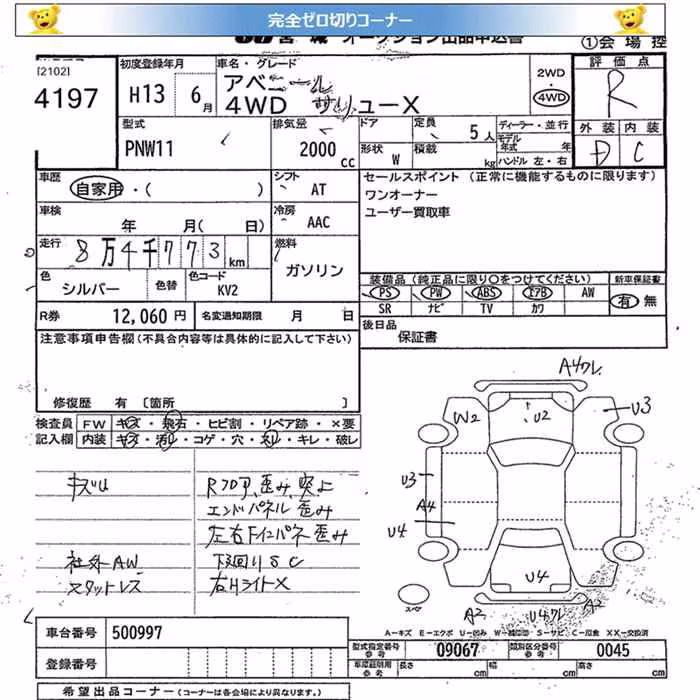 完全ゼロ切りコーナー
宮城 オークション出品申込書
①会場控
[2102]
4197
初度登録年月
H13 6月
車名・グレード
アベニール
4WD サリューX
2WD
・
4WD
評価点
R
外装 内装
D C
型式
PNW11
排気量
2000 cc
ドア
形状 W
定員 5人
積載 kg
ディーラー・並行
モデル年式 年
ハンドル 左・右
車歴
自家用・( )
シフト
AT
車検
年 月( 日)
冷房
AAC
走行
8万4千773km
燃料
ガソリン
色
シルバー
色替
色コード
KV2
R券 12,060円
名変通知期限 月 日
セールスポイント (正常に機能するものに限ります)
ワンオーナー
ユーザー買取車
装備品(純正品に限り○をつけてください)
PS PW ABS エアB AW
SR ナビ TV カワ
新車保証書
有 無
後日品
保証書
注意事項申告欄(不具合内容等は具体的に記入して下さい)
修復歴 有 〔箇所 〕
検査員記入欄
FW キズ・飛石・ヒビ割・リペア跡・×要
内装 キズ・汚れ・コゲ・穴・ネジ・キレ・破レ
キズU
社外AW
スタットレス
Rフロア、歪み、突上
エンドパネル歪み
左右Fインパネ歪み
下廻りSC
右Hライト×
A4ワレ
W2
U2
U3
U3
A4
U4
U4
A2
U4ワレ
A2
スペア
A―キズ E―エクボ U―凹み W―補修跡 S―サビ C―腐食 XX―交換済
車台番号 500997
登録番号
型式指定番号 参考 09067
類別区分番号 参考 0045
車庫証明用 参考 長さ cm 幅 cm 高さ cm
希望出品コーナー (コーナーは各会場により異なります。)